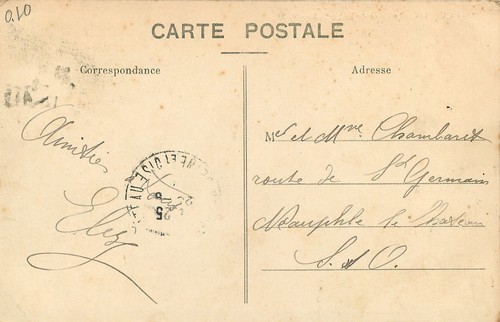 0.10
CARTE POSTALE
Correspondance
Adresse
Amitiés
Elisy
M et Mme Chambaret
route de St Germain
Neauphle le Château
S. et O.
SEINE ET OISE
25